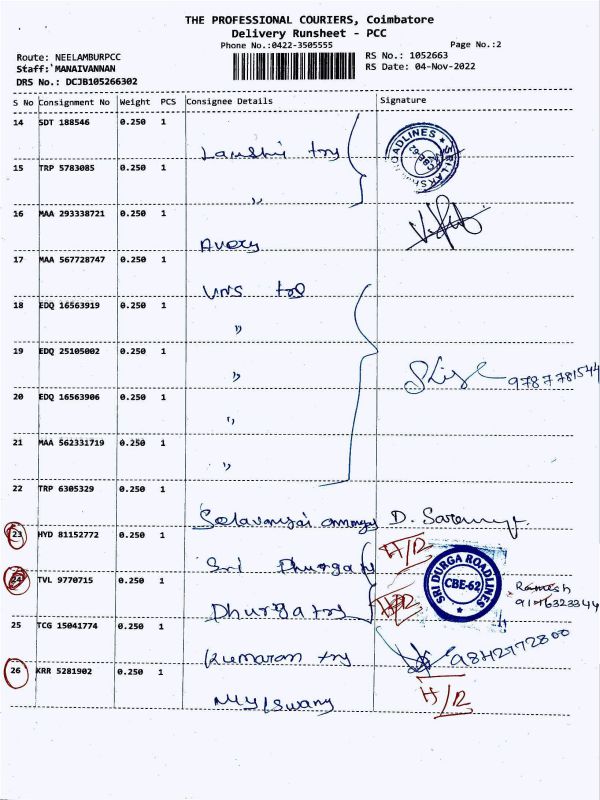 THE PROFESSIONAL COURIERS, Coimbatore
Delivery Runsheet - PCC
Phone No.:0422-3505555 Page No.:2
Route: NEELAMBURPCC RS No.: 1052663
Staff: MANAIVANNAN RS Date: 04-Nov-2022
DRS No.: DCJB105266302
S No Consignment No Weight PCS Consignee Details Signature
14 SDT 188546 0.250 1
SRI LAKSHMI ROADLINES
CBE-62
15 TRP 5783085 0.250 1
"
16 MAA 293338721 0.250 1
Avery
17 MAA 567728747 0.250 1
VNS
18 EDQ 16563919 0.250 1
"
19 EDQ 25105002 0.250 1
" 9787781544
20 EDQ 16563906 0.250 1
"
21 MAA 562331719 0.250 1
"
22 TRP 6305329 0.250 1
D.
23 HYD 81152772 0.250 1
Sri H/R
SRI DURGA ROADLINES
CBE-62
24 TVL 9770715 0.250 1
Ramesh
25 TCG 15041774 0.250 1
Kumaran try 9842772800
26 KRR 5281902 0.250 1
H/R